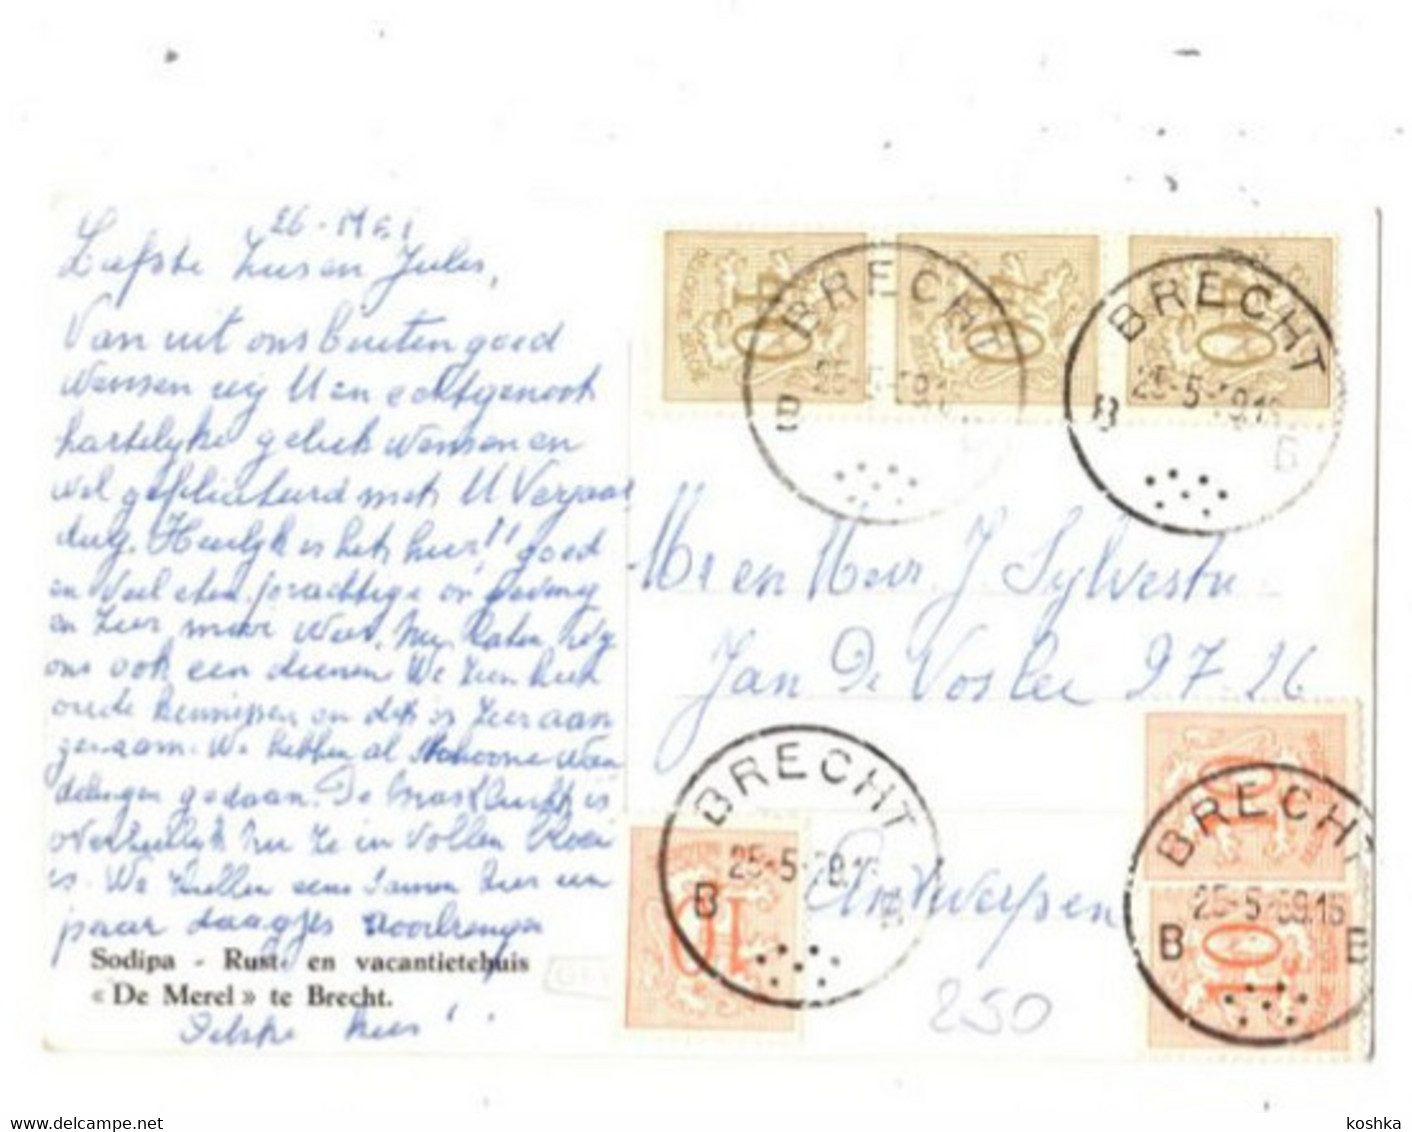 26-Mei
Liefste Zus en Jules,
Van uit ons buiten goed
wensen wij U en echtgenoot
hartelijke geluk wensen en
wel gefeliciteerd met U Verjaar
dag. Heerlijk is het hier!! goed
en veel eten, prachtige omgeving
en zeer mooi weer. Wij laten
ons ook een dienen. We zien hier
oude kennissen en dat is zeer aan
genaam. We hebben al schoone wan
delingen gedaan. De is
in vollen bloei
is. We zullen eens samen hier een
paar daagjes doorbrengen
Sodipa - Rust- en vacantietehuis
« De Merel » te Brecht.
BRECHT
25-5-59.15
B
BRECHT
B 25-5-59.15
Mr en Mevr J Sylvestre
Jan De Voslei 97 26
Antwerpen
BRECHT
B 25-5-59.15
10
10
BRECHT
25-5-59.15
B E
10
250
koshka